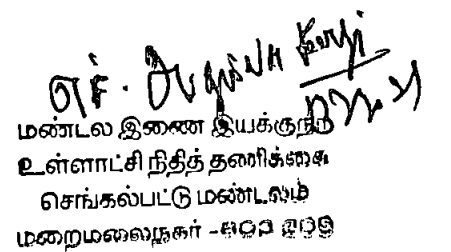 மண்டல இணை இயக்குநர்
உள்ளாட்சி நிதித் தணிக்கை
செங்கல்பட்டு மண்டலம்
மறைமலைநகர் -603 209